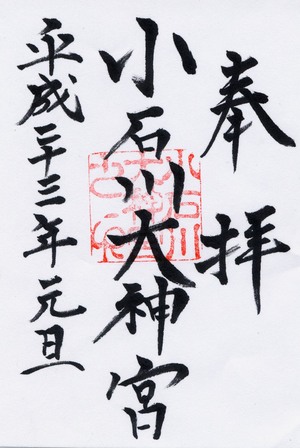 奉拝
小石川大神宮
平成二十三年元旦